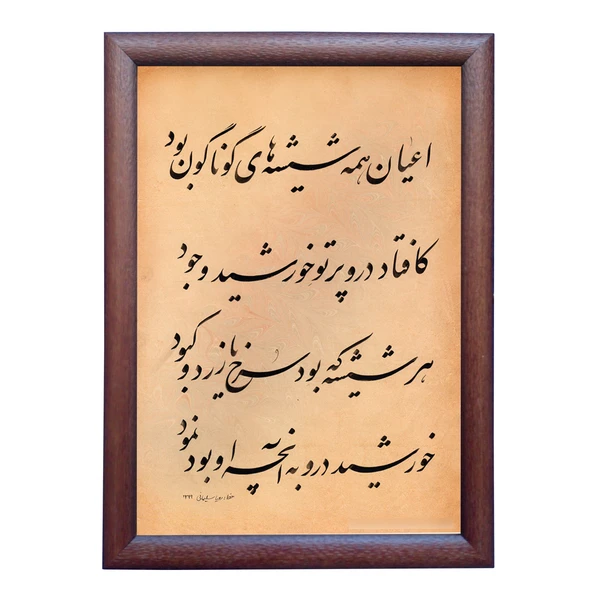 اعیان همه شیشه‌های گوناگون بود
کافتاد درو پرتو خورشید وجود
هر شیشه که بود سرخ یا زرد و کبود
خورشید درو به آنچه او بود نمود